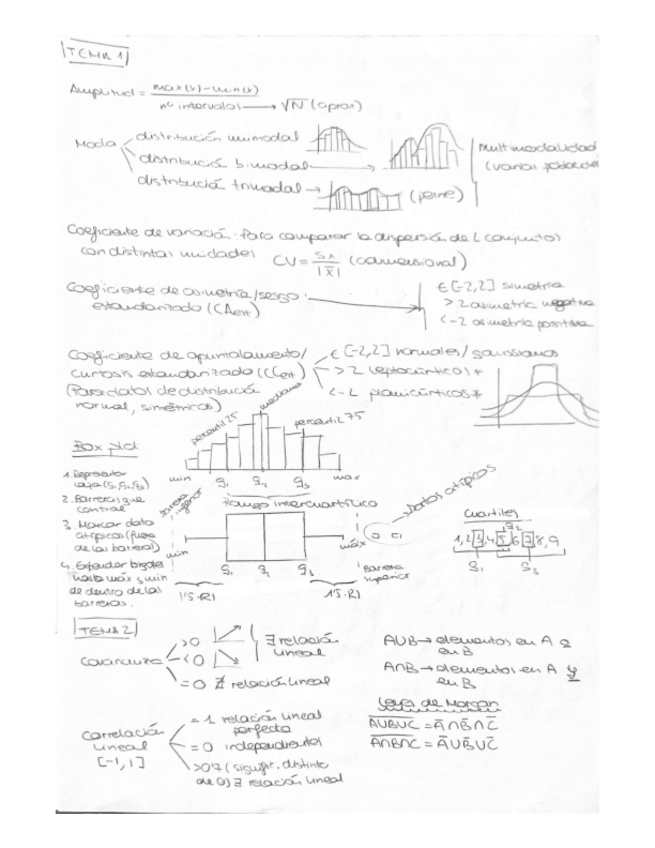 TEMA 1
Amplitud = max(x)-min(x)
nº intervalos → √N (aprox)
Moda
distribución unimodal
distribución bimodal
distribución trimodal → (peine)
Multimodalidad
(varias
Coeficiente de variación: Para comparar la dispersión de 2 conjuntos
con distintas unidades CV = Sx / |x̄| (adimensional)
Coeficiente de asimetría/sesgo
estandarizado (CAest)
∈ [-2,2] simetría
>2 asimetric negativa
<-2 asimetría positiva
Coeficiente de apuntalamiento/
curtosis estandarizado (CCest)
(Para datos de distribución
normal, simétricos)
∈ [-2,2] normales/gaussianos
>2 leptocúrticos *
<-2 planicúrticos *
Box plot
percentil 25
mediana
percentil 75
min q1 q2 q3 max
1. Representar
caja (q1, q2, q3)
2. Barreras que
3. Marcar datos
atípicos (fuera
de las barreras)
4. Extender bigotes
hasta máx y min
de dentro de las
barreras.
barrera inferior
Rango intercuartílico
datos atípicos
min
máx
q1 q2 q3
1'5·RI
1'5·RI
Barrera
superior
Cuartiles
q2
1,2 3,4 5 6 7 8,9
q1 q3
TEMA 2
Covarianza
>0
<0
∃ relación
lineal
=0 ∄ relación lineal
Correlación
lineal
[-1,1]
=1 relación lineal
perfecta
=0 independientes
>0'7 (signific. distinto
de 0) ∃ relación lineal
AUB → elementos en A o
en B
A∩B → elementos en A y
en B
Leyes de Morgan
A̅U̅B̅U̅C̅ = A̅∩B̅∩C̅
A̅∩̅B̅∩̅C̅ = A̅UB̅UC̅